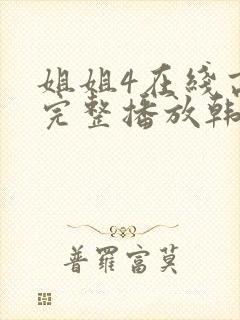 姐姐4在线
完整播放韩
普罗富莫